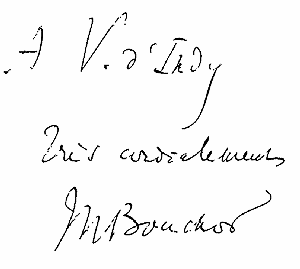 A V. d'Indy
Très cordialement
M Bouchor